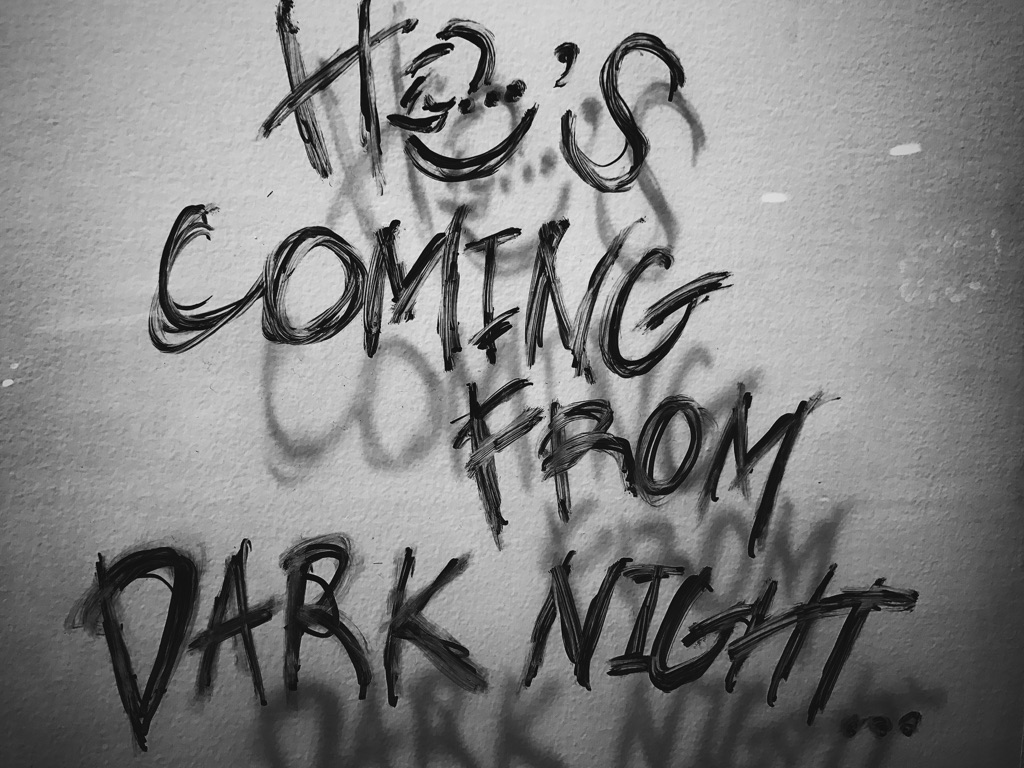 He's
COMING
FROM
DARK NIGHT...